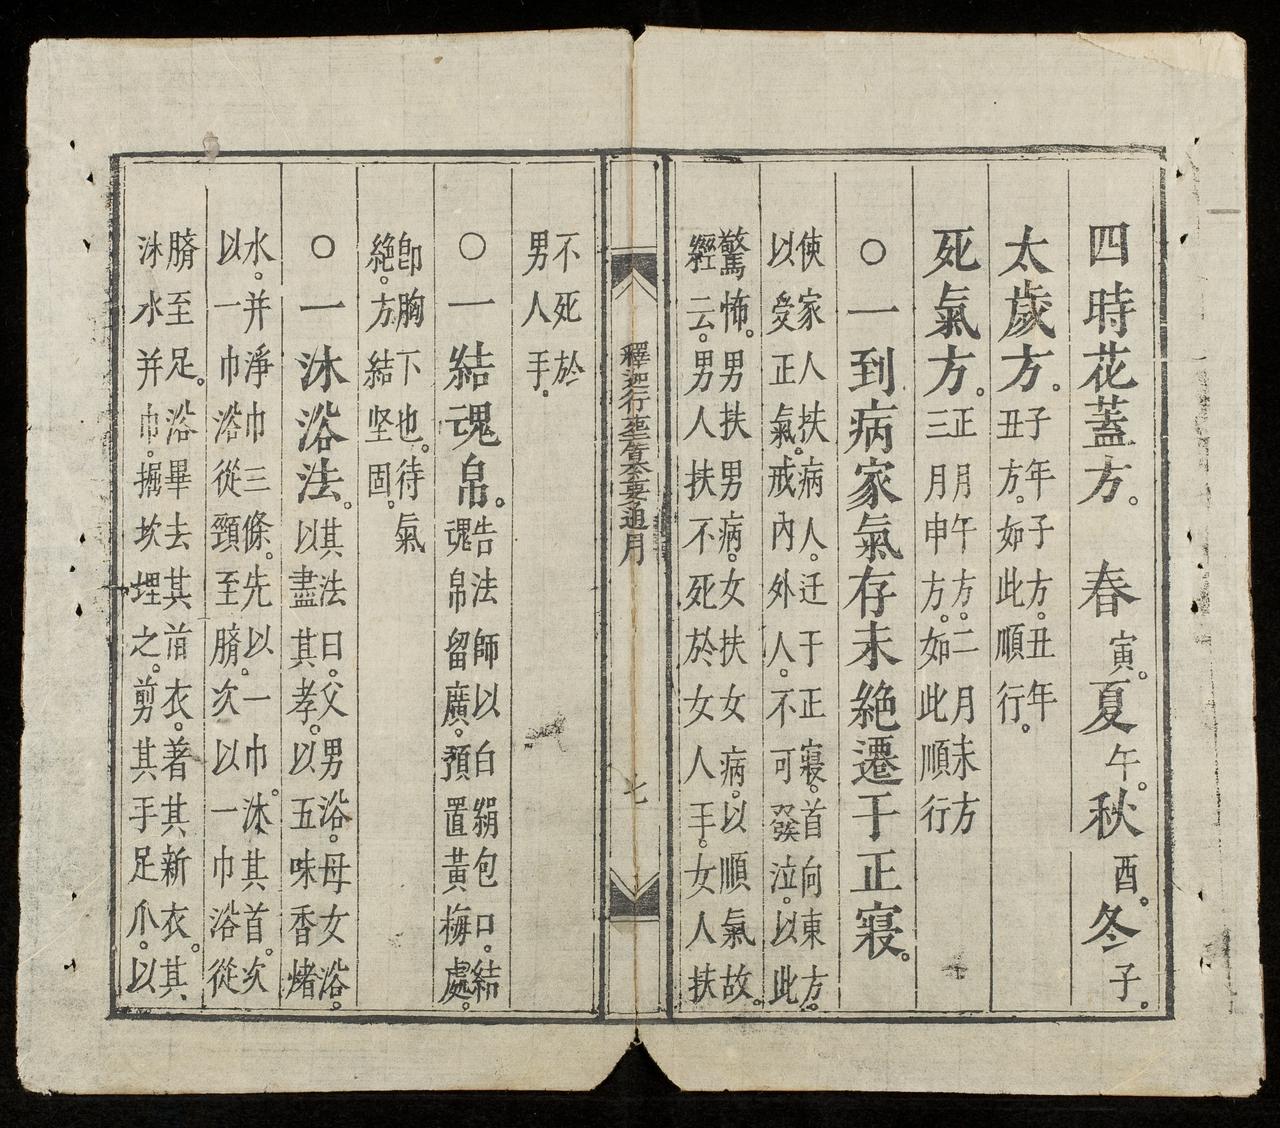 四時花蓋方。 春寅。夏午。秋酉。冬子。
太歲方。
子年子方。丑年
丑方。如此順行。
死氣方。
正月午方。二月未方
三月申方。如此順行
○一到病家氣存未絕遷于正寢。
使家人扶病人。迁于正寢。首向東方。
以受正氣。戒內外人。不可發泣。以此
驚怖。男扶男病。女扶女病。以順氣故。
經云。男人扶不死於女人手。女人扶
釋迦行 要通月
七
不死於
男人手。
○一結魂帛。
告法師以白絹包口。結
魂帛留廣。預置黃梅處。
卽胸下也。待氣
絕。方結坚固。
○一沐浴法。
其法曰。父男浴。母女浴。
以盡其孝。以五味香煑
水。并淨巾三條。先以一巾。沐其首。次
以一巾浴從頸至臍。次以一巾浴從
臍至足。浴畢去其衣。著其新衣。其
沐水并巾。掘坎埋之。剪其手足爪。以